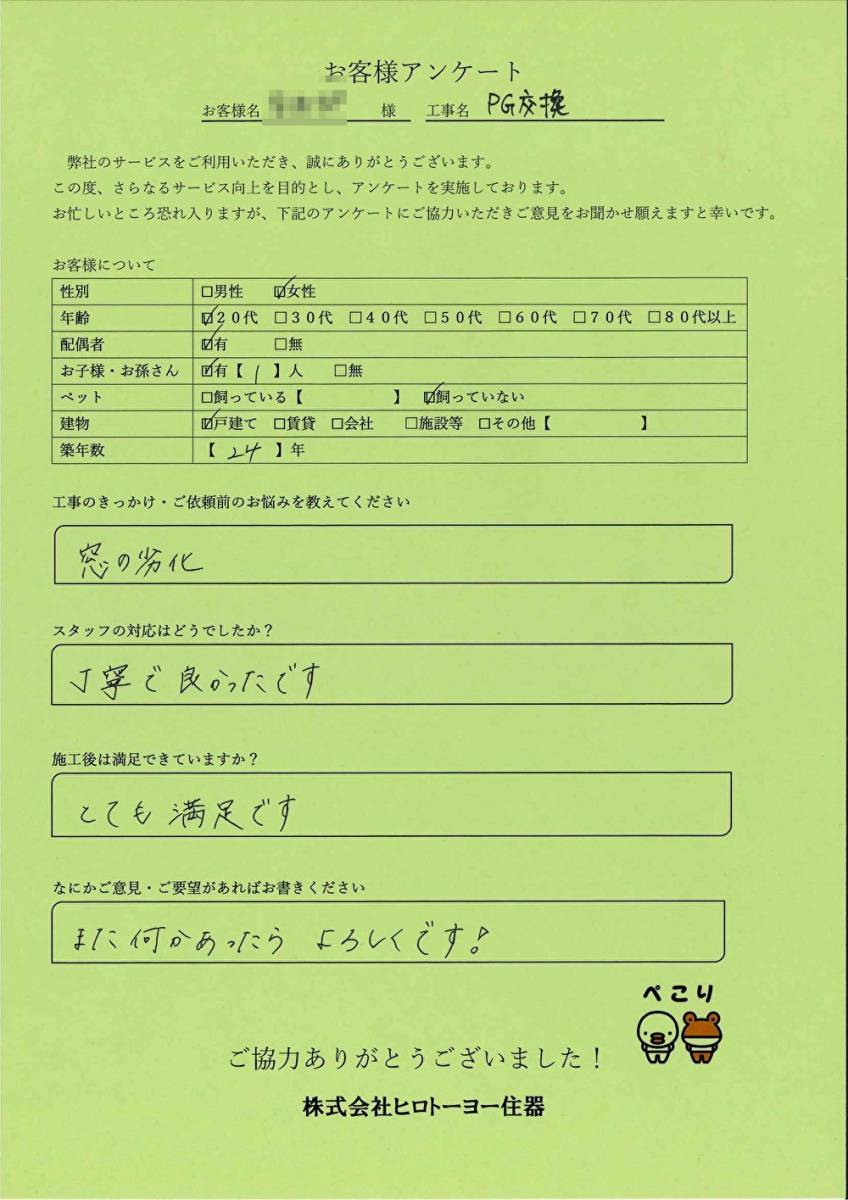 お客様アンケート
お客様名 様 工事名 PG交換
弊社のサービスをご利用いただき、誠にありがとうございます。
この度、さらなるサービス向上を目的とし、アンケートを実施しております。
お忙しいところ恐れ入りますが、下記のアンケートにご協力いただきご意見をお聞かせ願えますと幸いです。
お客様について
性別 □男性 ☑女性
年齢 ☑20代 □30代 □40代 □50代 □60代 □70代 □80代以上
配偶者 ☑有 □無
お子様・お孫さん ☑有【 1 】人 □無
ペット □飼っている【 】 ☑飼っていない
建物 ☑戸建て □賃貸 □会社 □施設等 □その他【 】
築年数 【 24 】年
工事のきっかけ・ご依頼前のお悩みを教えてください
窓の劣化
スタッフの対応はどうでしたか？
丁寧で良かったです
施工後は満足できていますか？
とても満足です
なにかご意見・ご要望があればお書きください
また何かあったら よろしくです!
ぺこり
ご協力ありがとうございました！
株式会社ヒロトーヨー住器